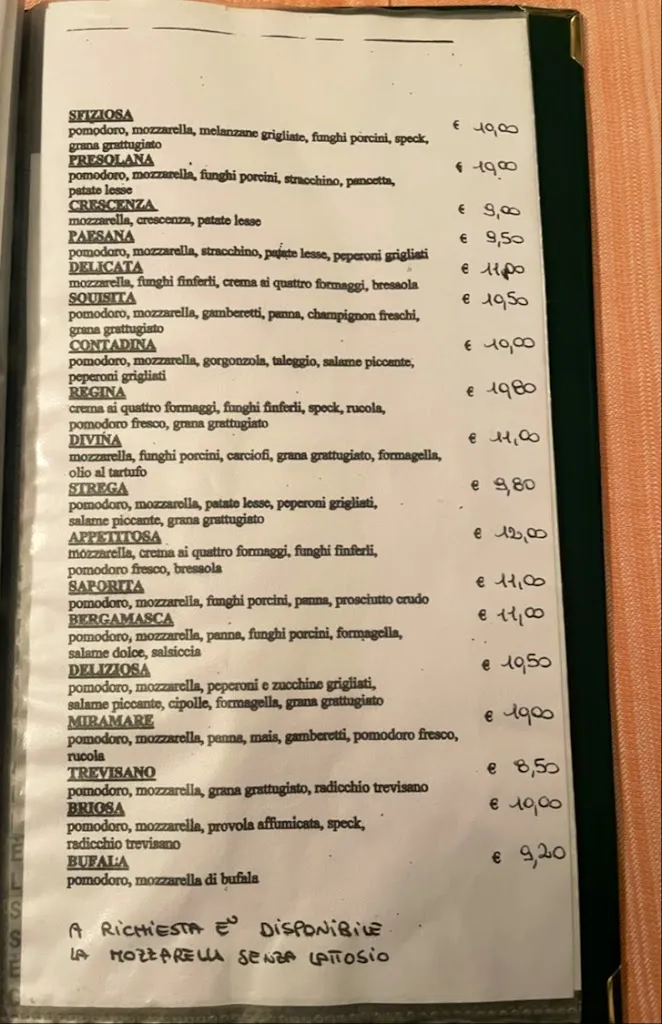 SFIZIOSA € 10,00
pomodoro, mozzarella, melanzane grigliate, funghi porcini, speck,
grana grattugiato
PRESOLANA € 10,00
pomodoro, mozzarella, funghi porcini, stracchino, pancetta,
patate lesse
CRESCENZA € 9,00
mozzarella, crescenza, patate lesse
PAESANA € 9,50
pomodoro, mozzarella, stracchino, patate lesse, peperoni grigliati
DELICATA € 11,00
mozzarella, funghi finferli, crema ai quattro formaggi, bresaola
SQUISITA € 10,50
pomodoro, mozzarella, gamberetti, panna, champignon freschi,
grana grattugiato
CONTADINA € 10,00
pomodoro, mozzarella, gorgonzola, taleggio, salame piccante,
peperoni grigliati
REGINA € 10,80
crema ai quattro formaggi, funghi finferli, speck, rucola,
pomodoro fresco, grana grattugiato
DIVINA € 11,00
mozzarella, funghi porcini, carciofi, grana grattugiato, formagella,
olio al tartufo
STREGA € 9,80
pomodoro, mozzarella, patate lesse, peperoni grigliati,
salame piccante, grana grattugiato
APPETITOSA € 12,00
mozzarella, crema ai quattro formaggi, funghi finferli,
pomodoro fresco, bresaola
SAPORITA € 11,00
pomodoro, mozzarella, funghi porcini, panna, prosciutto crudo
BERGAMASCA € 11,00
pomodoro, mozzarella, panna, funghi porcini, formagella,
salame dolce, salsiccia
DELIZIOSA € 10,50
pomodoro, mozzarella, peperoni e zucchine grigliati,
salame piccante, cipolle, formagella, grana grattugiato
MIRAMARE € 10,00
pomodoro, mozzarella, panna, mais, gamberetti, pomodoro fresco,
rucola
TREVISANO € 8,50
pomodoro, mozzarella, grana grattugiato, radicchio trevisano
BRIOSA € 10,00
pomodoro, mozzarella, provola affumicata, speck,
radicchio trevisano
BUFALA € 9,20
pomodoro, mozzarella di bufala
A RICHIESTA E' DISPONIBILE
LA MOZZARELLA SENZA LATTOSIO